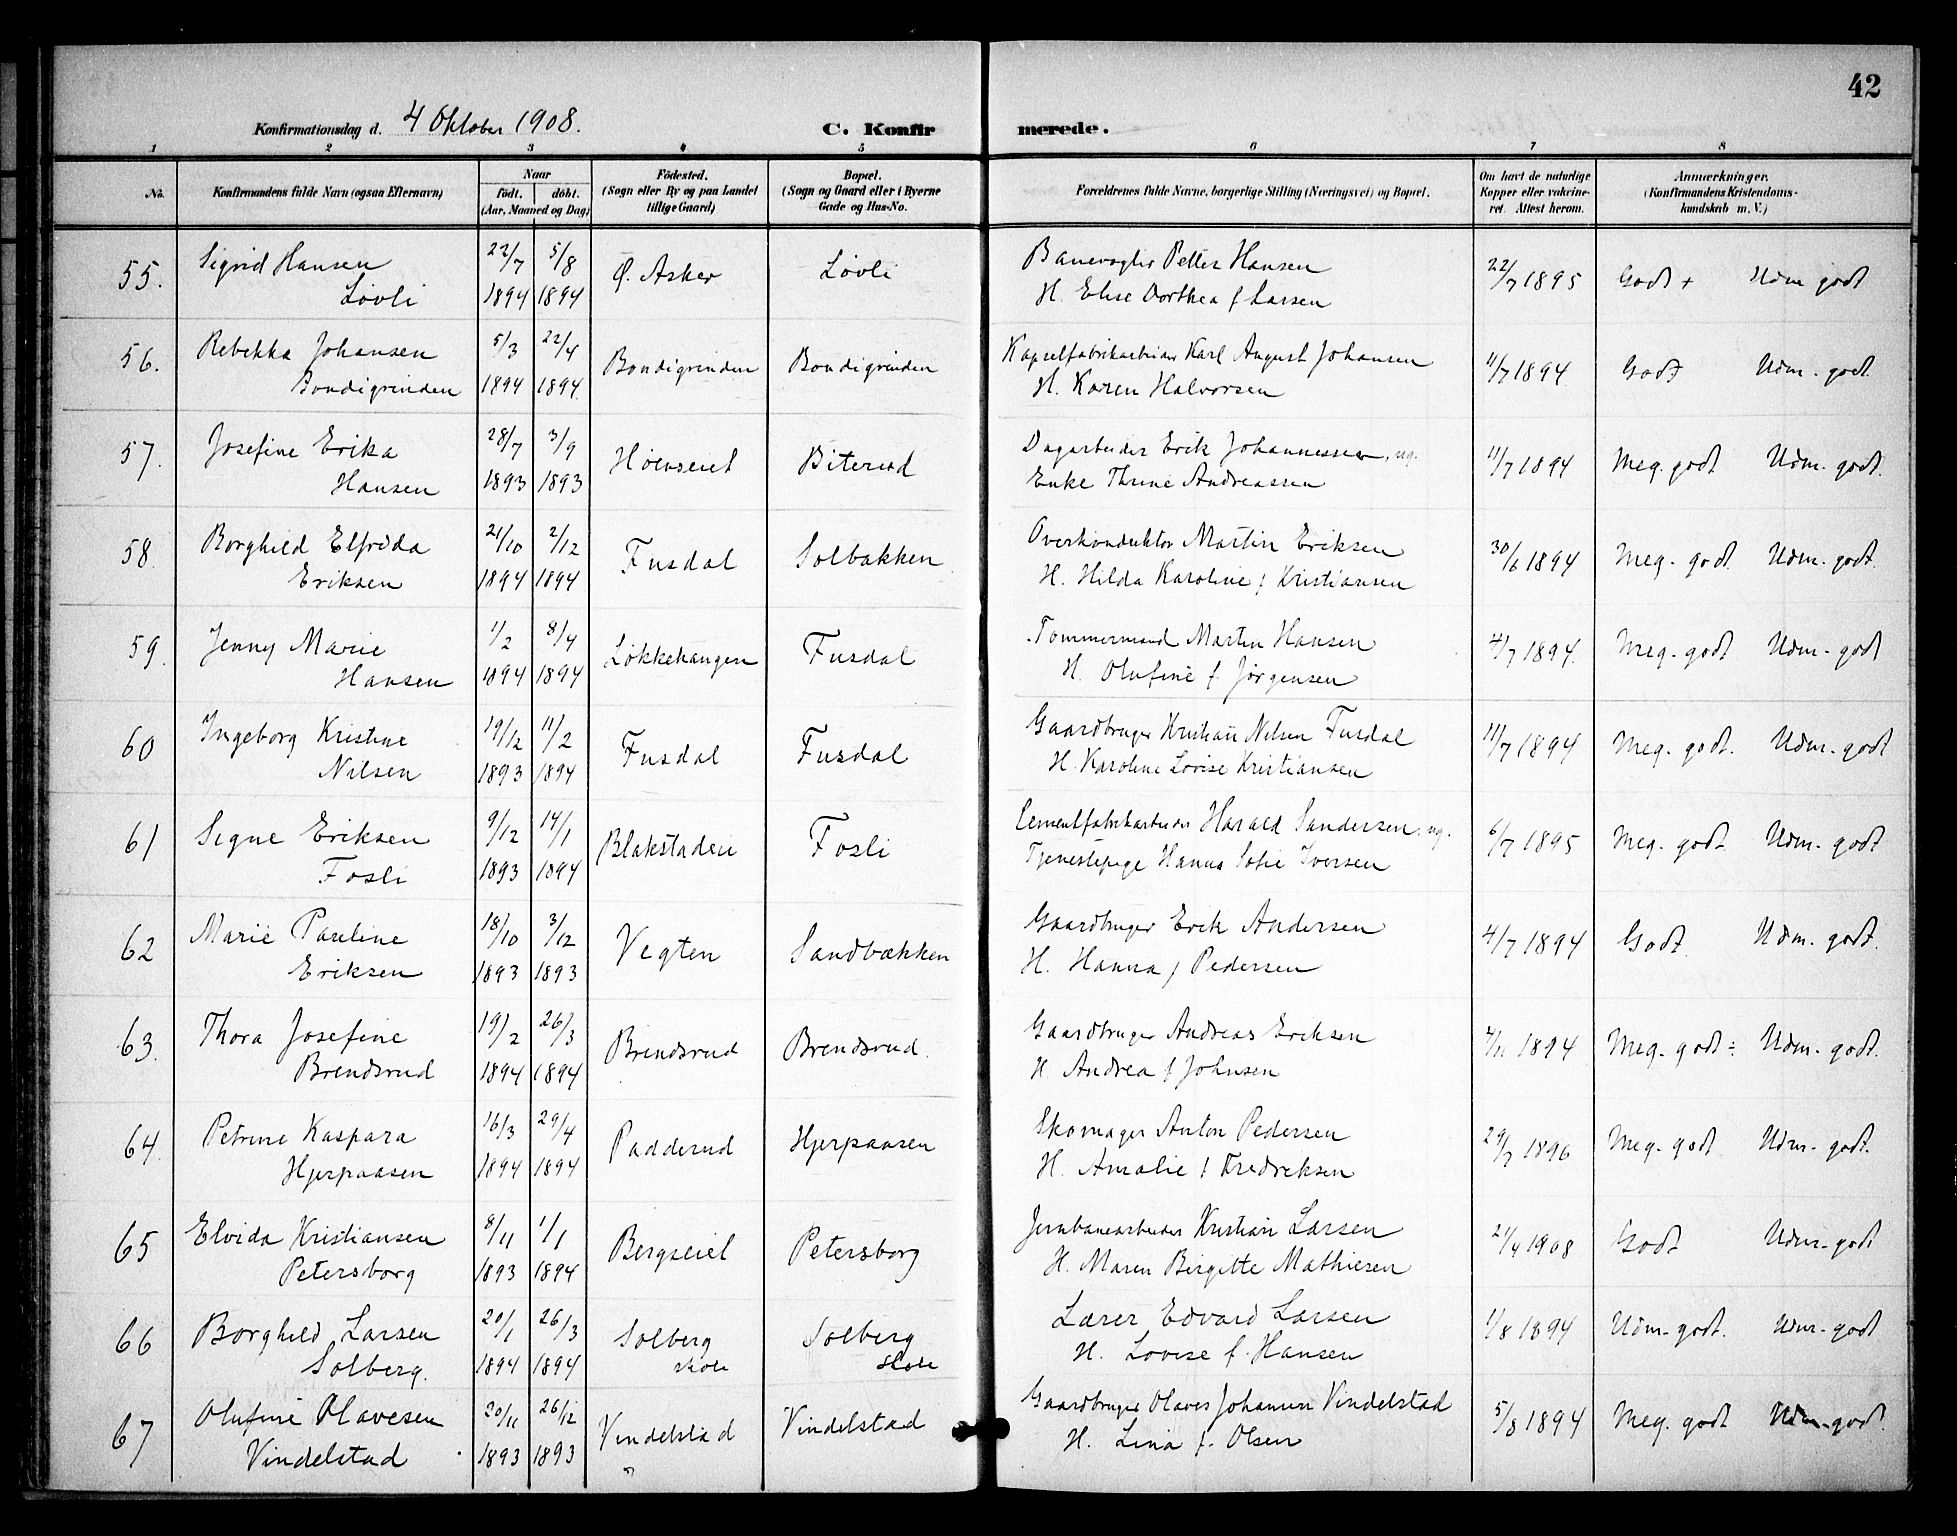 42
Konfirmationsdag d. 4 Oktober 1908.
C. Konfirmerede.
1 2 3 4 5 6 7 8
No.
Konfirmandens fulde Navn (ogsaa Efternavn)
Naar
født. døbt.
(Aar, Maaned og Dag)
Fødested.
(Sogn eller By og paa Landet
tillige Gaard)
Bopæl.
(Sogn og Gaard eller i Byerne
Gade og Hus-No.
Forældrenes fulde Navne, borgerlige Stilling (Næringsvei) og Bopæl.
Om havt de naturlige
Kopper eller vakcine-
ret. Attest herom.
Anmærkninger.
(Konfirmandens Kristendoms-
kundskab m. V.)
55. Sigrid Hansen 22/7 5/8 Ø. Asker Løvli Banevogter Petter Hansen 22/7 1895 Godt + Udm godt
Løvli 1894 1894 H. Elise Dorthea f Larsen
56. Rebekka Johansen 5/3 22/4 Bondigrinden Bondigrinden Kapselfabrikarbeider Karl August Johansen 11/7 1894 Godt Udm. godt.
Bondigrinden 1894 1894. H. Karen Halvorsen
57. Josefine Erika 28/7 3/9 Høenseiet Biterud Dagarbeider Erik Johannessen, ug. 11/7 1894 Meg. godt Udm. godt.
Hansen 1893 1893 Enke Thrine Andreassen
58. Borghild Elfrida 21/10 2/12 Fusdal Solbakken Overkonduktør Martin Eriksen 30/6 1894 Meg. godt Udm. godt.
Eriksen 1894 1894 H. Hilda Karoline f Kristiansen
59. Jenny Marie 1/2 8/4 Løkkehaugen Fusdal Tømmermand Martin Hansen 4/7 1894. Meg. godt Udm. godt
Hansen 1894 1894 H. Olufine f. Jørgensen
60 Ingeborg Kristine 19/12 11/2 Fusdal Fusdal Gaardbruger Kristian Nilsen Fusdal 11/7 1894 Meg. godt. Udm. godt
Nilsen 1893 1894 H. Karoline Lovise Kristiansen
61 Signe Eriksen 9/12 14/1 Blakstadeie Fosli Cementfabrikarbeider Harald Sandersen, ug. 6/7 1895 Meg. godt Udm. godt
Fosli 1893 1894 Tjenestepige Hanna Sofie Iversen
62 Marie Pauline 18/10 3/12 Vegten Sandbækken Gaardbruger Erik Andersen 4/7 1894 Godt. Udm. godt.
Eriksen 1893 1893 H. Hanna f Pedersen
63. Thora Josefine 19/2 26/3 Brendsrud Brendsrud. Gaardbruger Andreas Eriksen 4/11 1894 Meg. godt ÷ Udm. godt.
Brendsrud 1894 1894 H. Andrea f Johnsen
64. Petrine Kaspara 16/3 29/4 Padderud Hjerpaasen Skomager Anton Pedersen 29/7 1896 Meg. godt Udm. godt.
Hjerpaasen 1894 1894 H. Amalie f Fredreksen
65 Elvida Kristiansen 8/11 1/1 Bergseiet Petersborg Jernbanearbeider Kristian Larsen 21/4 1908 Godt Udm. godt
Petersborg 1893 1894 H. Maren Birgitte Mathiesen
66 Borghild Larsen 20/1 26/3 Solberg skole Solberg skole Lærer Edvard Larsen 1/8 1894 Udm. godt. Udm. godt
Solberg. 1894 1894 H. Lovise f. Hansen
67 Olufine Olavesen 20/11 26/12 Vindelstad Vindelstad Gaardbruger Olaves Johannesen Vindelstad 5/8 1894 Meg. godt Udm. godt.
Vindelstad 1893 1893 H. Lina f. Olsen